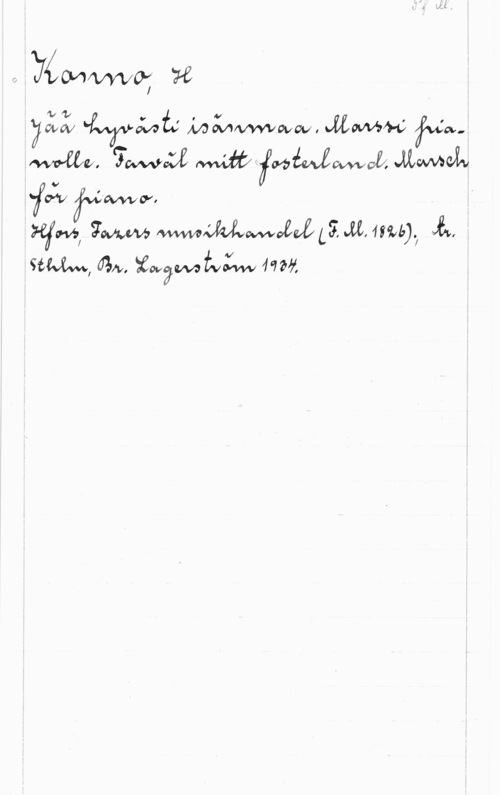 Kanno, H
Jää hyvästi isänmaa. Marssi pia-
nolle. Farväl mitt fosterland. Marsch
för piano.
Hfors, Fazers musikhandel (F. M. 1826); tr.
Sthlm, Br. Lagerström 1934.